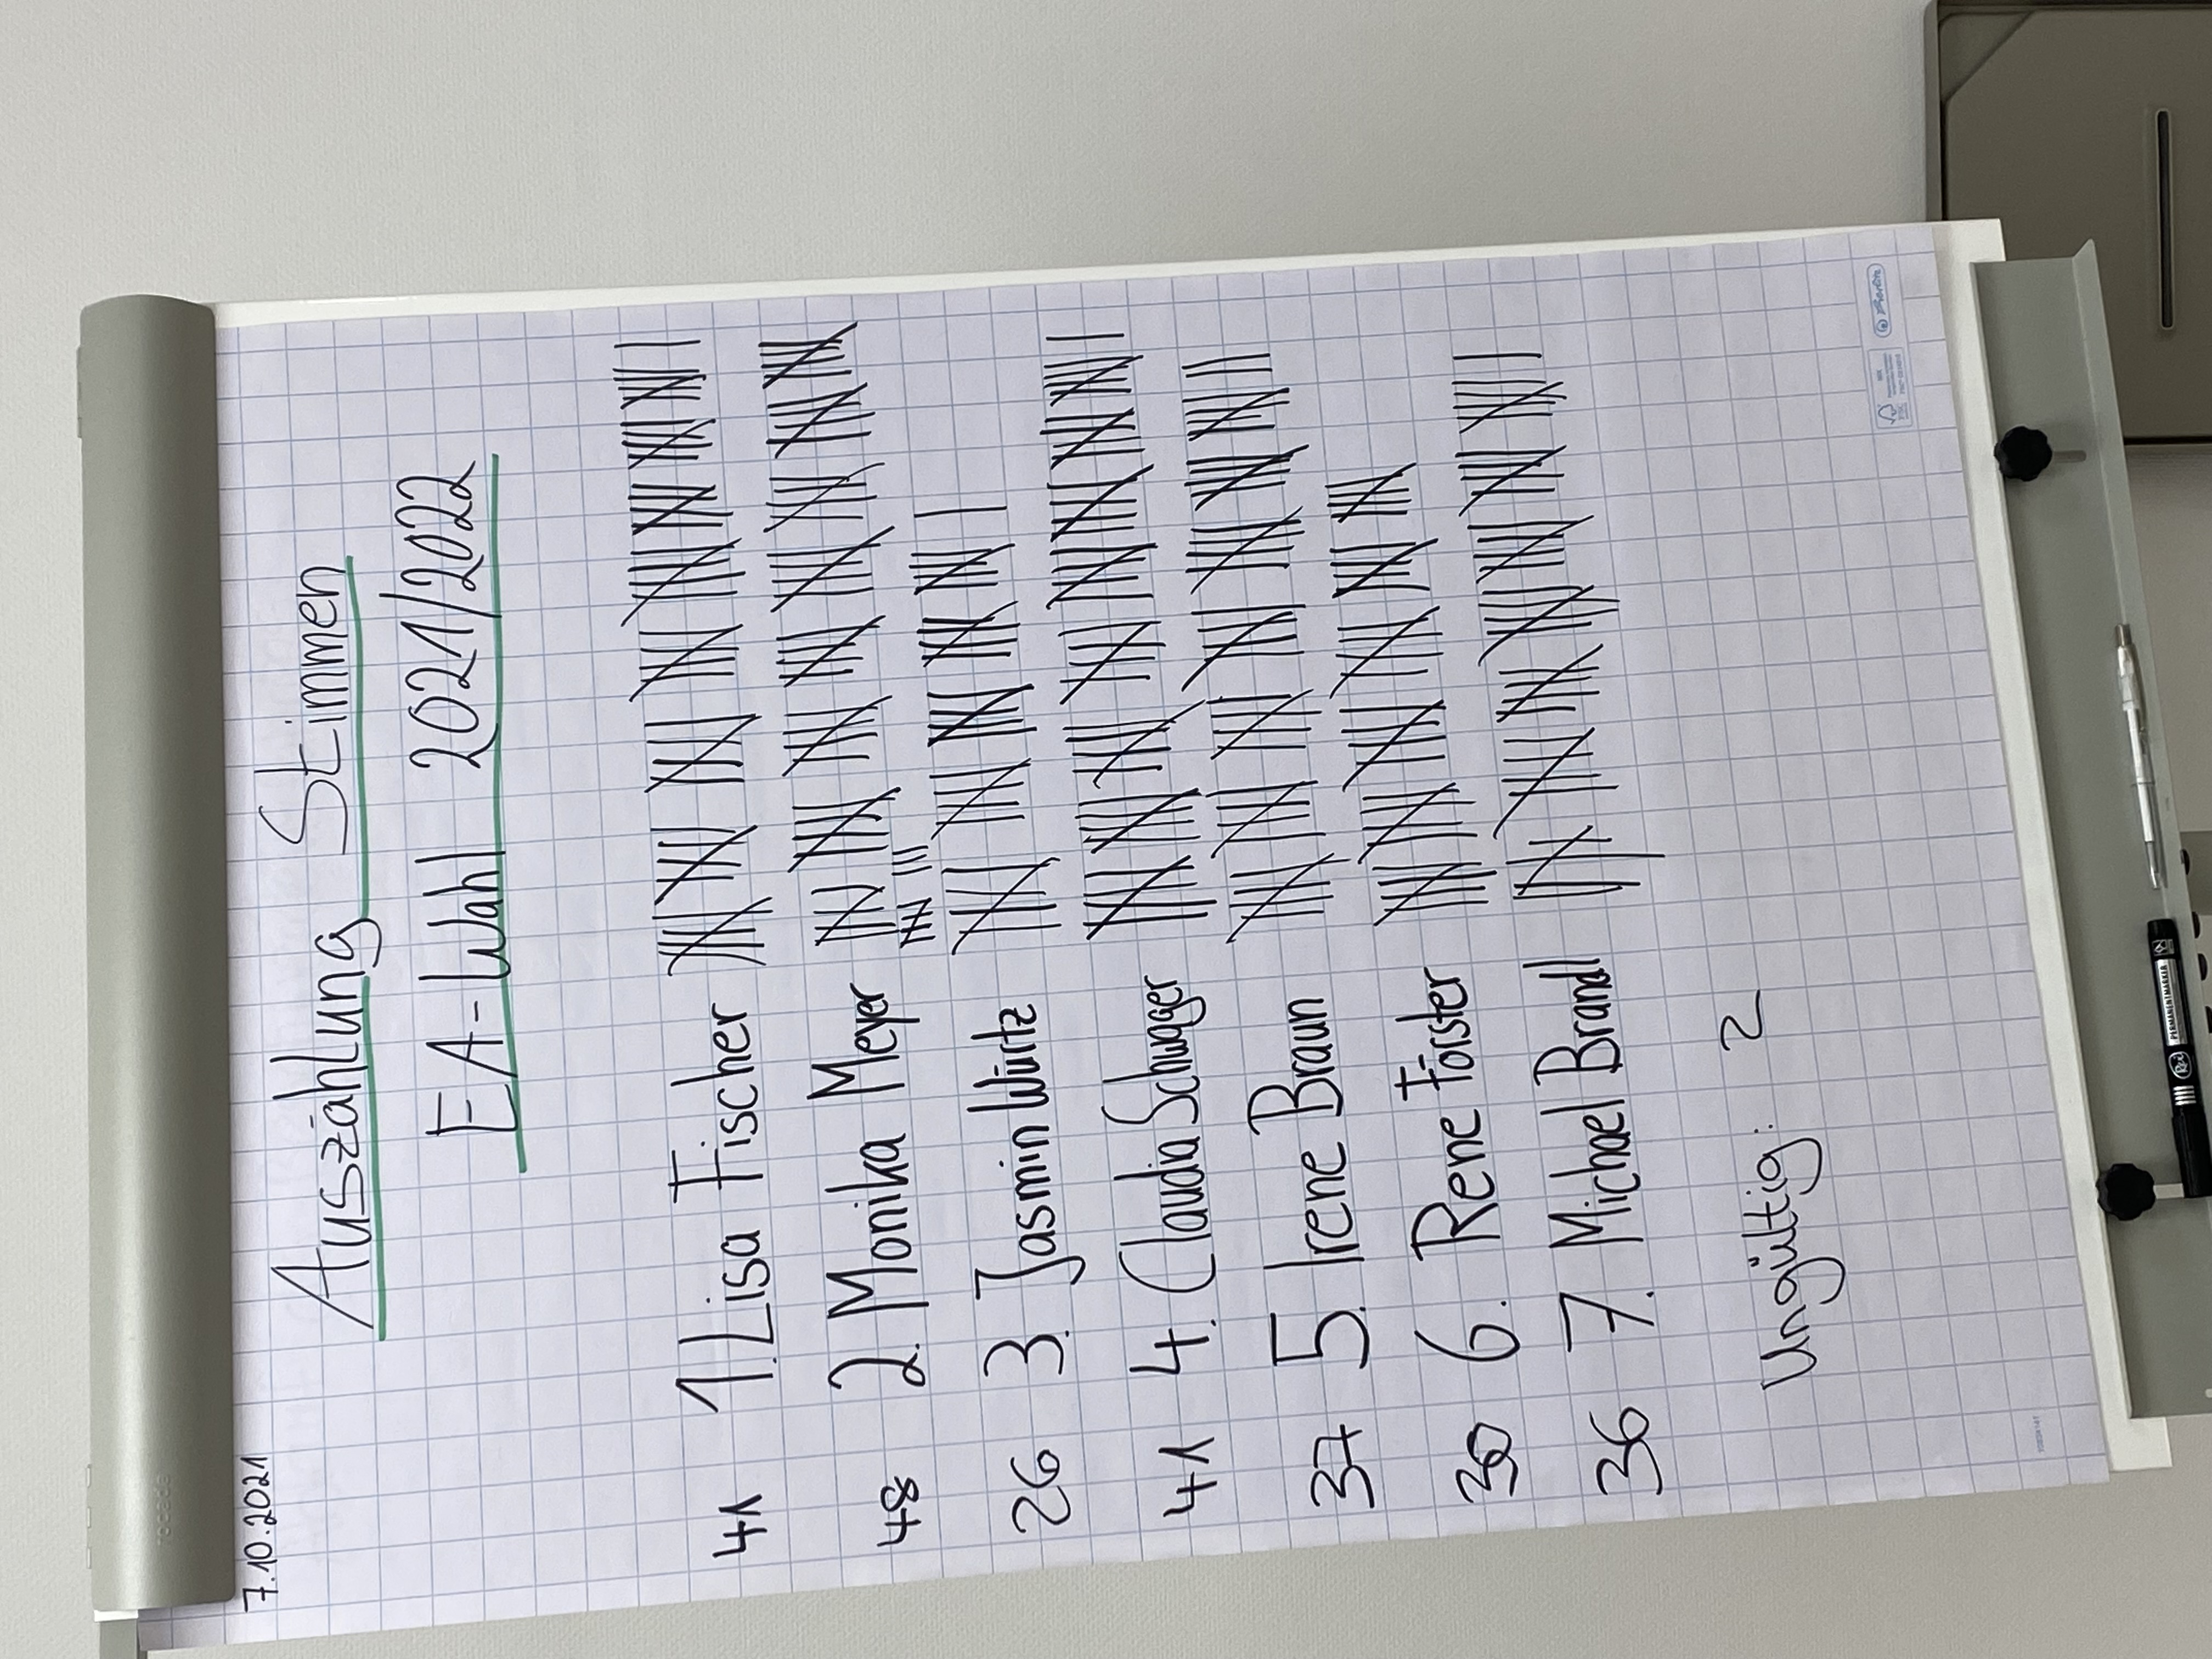 7.10.2021
Auszählung Stimmen
EA-Wahl 2021/2022
41 1. Lisa Fischer
48 2. Monika Meyer
26 3. Jasmin Würtz
41 4. Claudia Schwager
37 5. Irene Braun
30 6. Rene Förster
36 7. Michael Brandl
Ungültig: 2